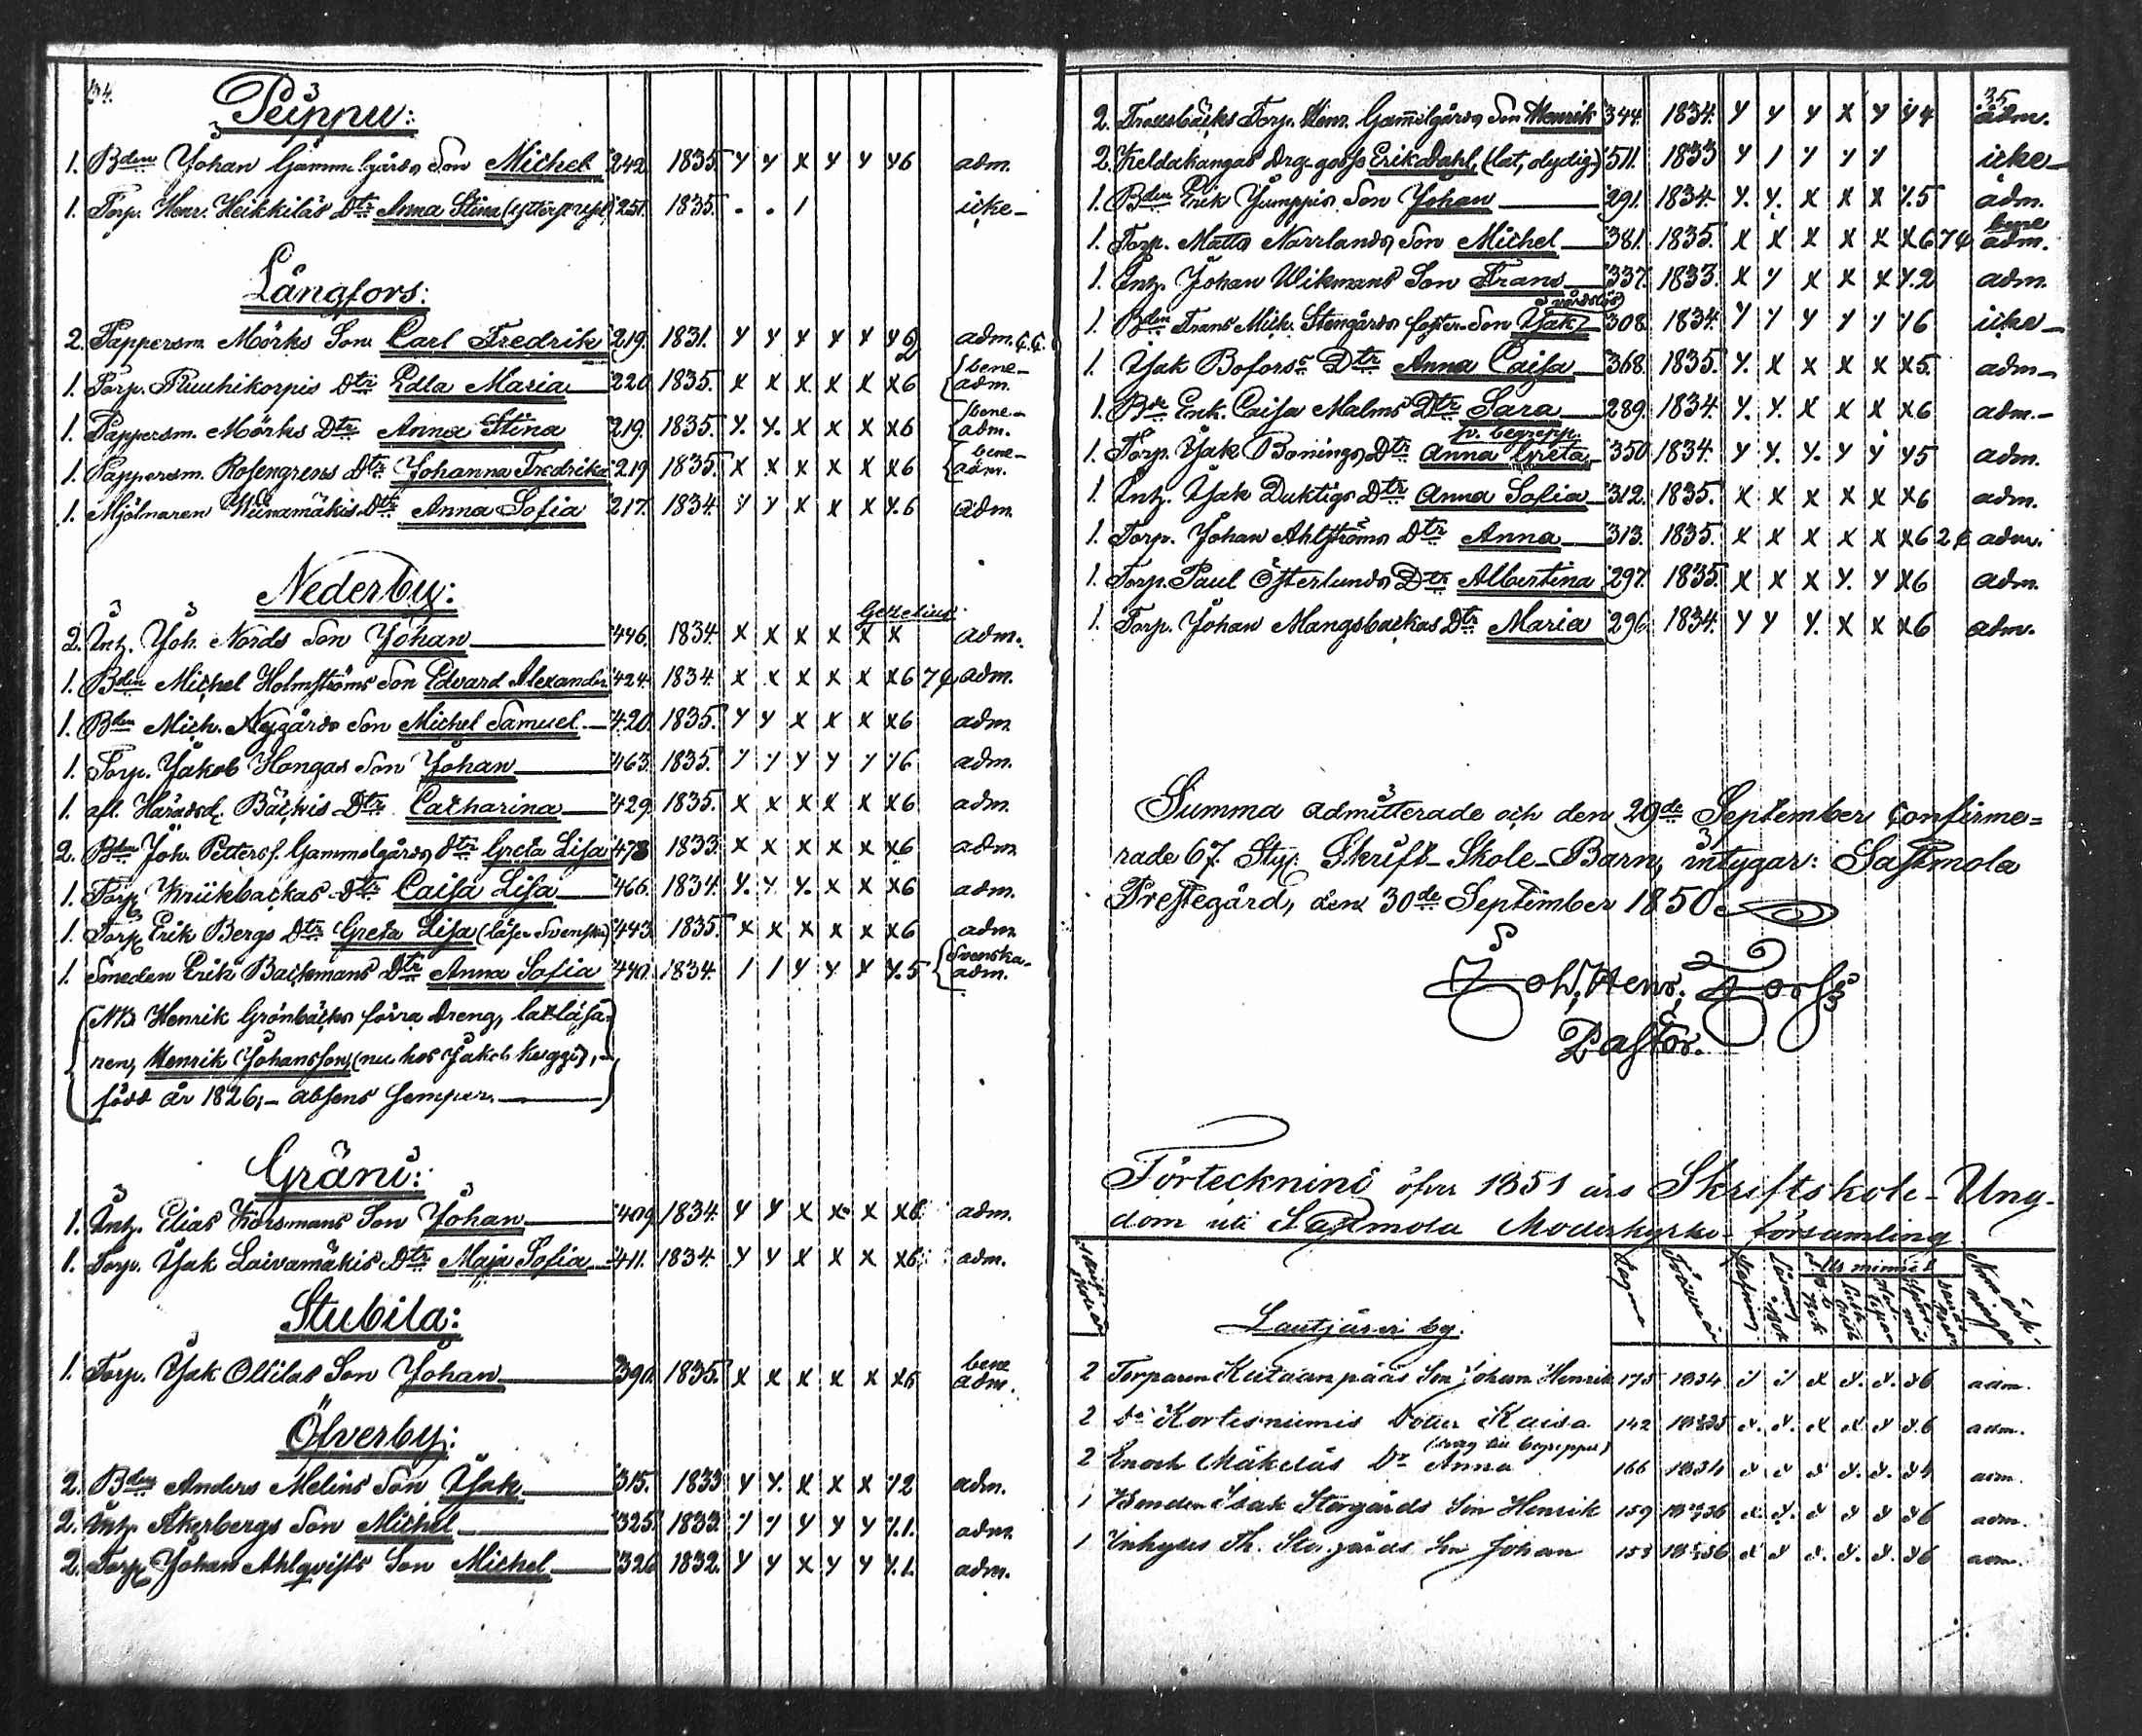 34.
Peippu:
1. Bden Johan Gammelgårds Son Michel 242. 1835. y y x y y y6 adm.
1. Torp. Henr. Heikkiläs Dtr Anna Stina 251. 1835. . . 1 icke
Långfors:
2. Pappersm. Mörks Son Carl Fredrik 219. 1831. y y y y y y2 adm.
1. Torp. Ruuhikorpis Dtr Edla Maria 220. 1835. x x x x x x6 bene adm.
1. Pappersm. Mörks Dtr Anna Stina 219. 1835. y. y. x x x x6 bene adm.
1. Pappersm. Rosengrens Dtr Johanna Fredrika 219 1835. x x x x x x6 bene adm.
1. Mjölnaren Viinamäkis Dtr Anna Sofia 217. 1834 y y x x x y.6 adm.
Nederby:
2. Inh. Joh. Nords Son Johan 446. 1834. x x x x x x Gezelius adm.
1. Bden Michel Holmströms Son Edvard Alexander 424. 1834. x x x x x x6 7 adm.
1. Bden Mich. Nygårds Son Michel Samuel 420. 1835. y y x x x x6 adm.
1. Torp. Jakob Hongas Son Johan 463. 1835. y y y y y y6 adm.
1. afl. Häradsd. Bäckis Dtr Catharina 429. 1835. x x x x x x6 adm.
2. Bden Joh. Petterss. Gammelgårds Dtr Greta Lisa 478 1833. x x x x x x6 adm.
1. Torp. Knükbackas Dtr Caisa Lisa 466. 1834. y. y y. x x x6 adm.
1. Torp. Erik Bergs Dtr Greta Lisa (läser Svenska) 443. 1835. x x x x x x6 adm.
1. Smeden Erik Backmans Dtr Anna Sofia 440. 1834. 1 1 y y x y.5 Svenska adm.
NB Henrik Grönbäcks förra dreng, latläsa-
ren, Henrik Johansson, (nu hos Jakob Keggi),
född år 1826, absens semper.
Gräni:
1. Inh. Elias Korsmans Son Johan 409 1834. y y x x x x6 adm.
1. Torp. Isak Laivamäkis Dtr Maja Sofia 411. 1834. y y x x x x6 adm.
Stubila:
1. Torp. Isak Ollilas Son Johan 390. 1835. x x x x x x6 bene adm.
Öfverby:
2. Bden Anders Melins Son Isak 315. 1833 y y. x x x y2 adm.
2. Inh. Åkerbergs Son Michel 325. 1833. y y y y y y.1. adm.
2. Torp. Johan Ahlqvists Son Michel 326 1832. y y x y y y.1. adm.
35
2. Torp. Henr. Gammelgårds Son Henrik 344. 1834. y y y x y y4 adm.
2. Keldakangas Drg. gosse Erik Dahl, (lat, olydig) 511. 1833 y 1 y y y icke
1. Bden Erik Jumppis Son Johan 291. 1834. y. y. x x x y.5 adm.
1. Torp. Matts Norrlands Son Michel 381. 1835. x x x x x x6 7 bene adm.
1. Inh. Johan Wikmans Son Frans 337. 1833. x y x x x y.2 adm.
1. Bden Frans Mich. Stengårds foster-Son Isak 308. 1834. y y y y y y6 icke
1. Isak Bofors Dtr Anna Caisa 368. 1835. y. x x x x x5. adm
1. Bde Enk. Caisa Malms Dtr Sara 289. 1834. y. y. x x x x6 adm.
1. Torp. Isak Bonings Dtr Anna Greta 350 1834. y y. y. y y y5 adm.
1. Inh. Isak Duktigs Dtr Anna Sofia 312. 1835. x x x x x x6 adm.
1. Torp. Johan Ahlströms Dtr Anna 313. 1835. x x x x x x6 2 adm.
1. Torp. Paul Österlunds Dtr Albertina 297. 1835. x x x y. y x6 adm.
1. Torp. Johan Mangsbackas Dtr Maria 296. 1834. y y y. x x x6 adm.
Summa admitterade och den 29de September confirme=
rade 67. Styc. Skrift-Skole-Barn, intygar: Sastmola
Prestegård, den 30de September 1850.
Joh. Henr. Forss
Pastor.
Förteckning öfver 1851 års Skriftskole-Ung-
dom uti Sastmola Moderkyrko-församling.
Lautjärvi by.
2 Torparen Kutaanpääs Son Johan Henrik 175 1834 adm.
2 do Kortesniemis Dotter Kaisa 142 1835 adm.
2 Enoch Mäkeläs Dr Anna (svag till begreppet) 166 1834 adm.
1 Bonden Isak Storgårds Son Henrik 159 1836 adm.
1 Inhyses Th. Storgårds Son Johan 153 1836 adm.